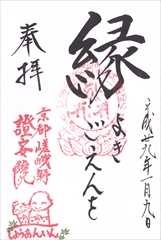 平成廿九年一月九日
縁
よき
ごえんを
奉拝
京都嵯峨野
證安院
しょうあんいん